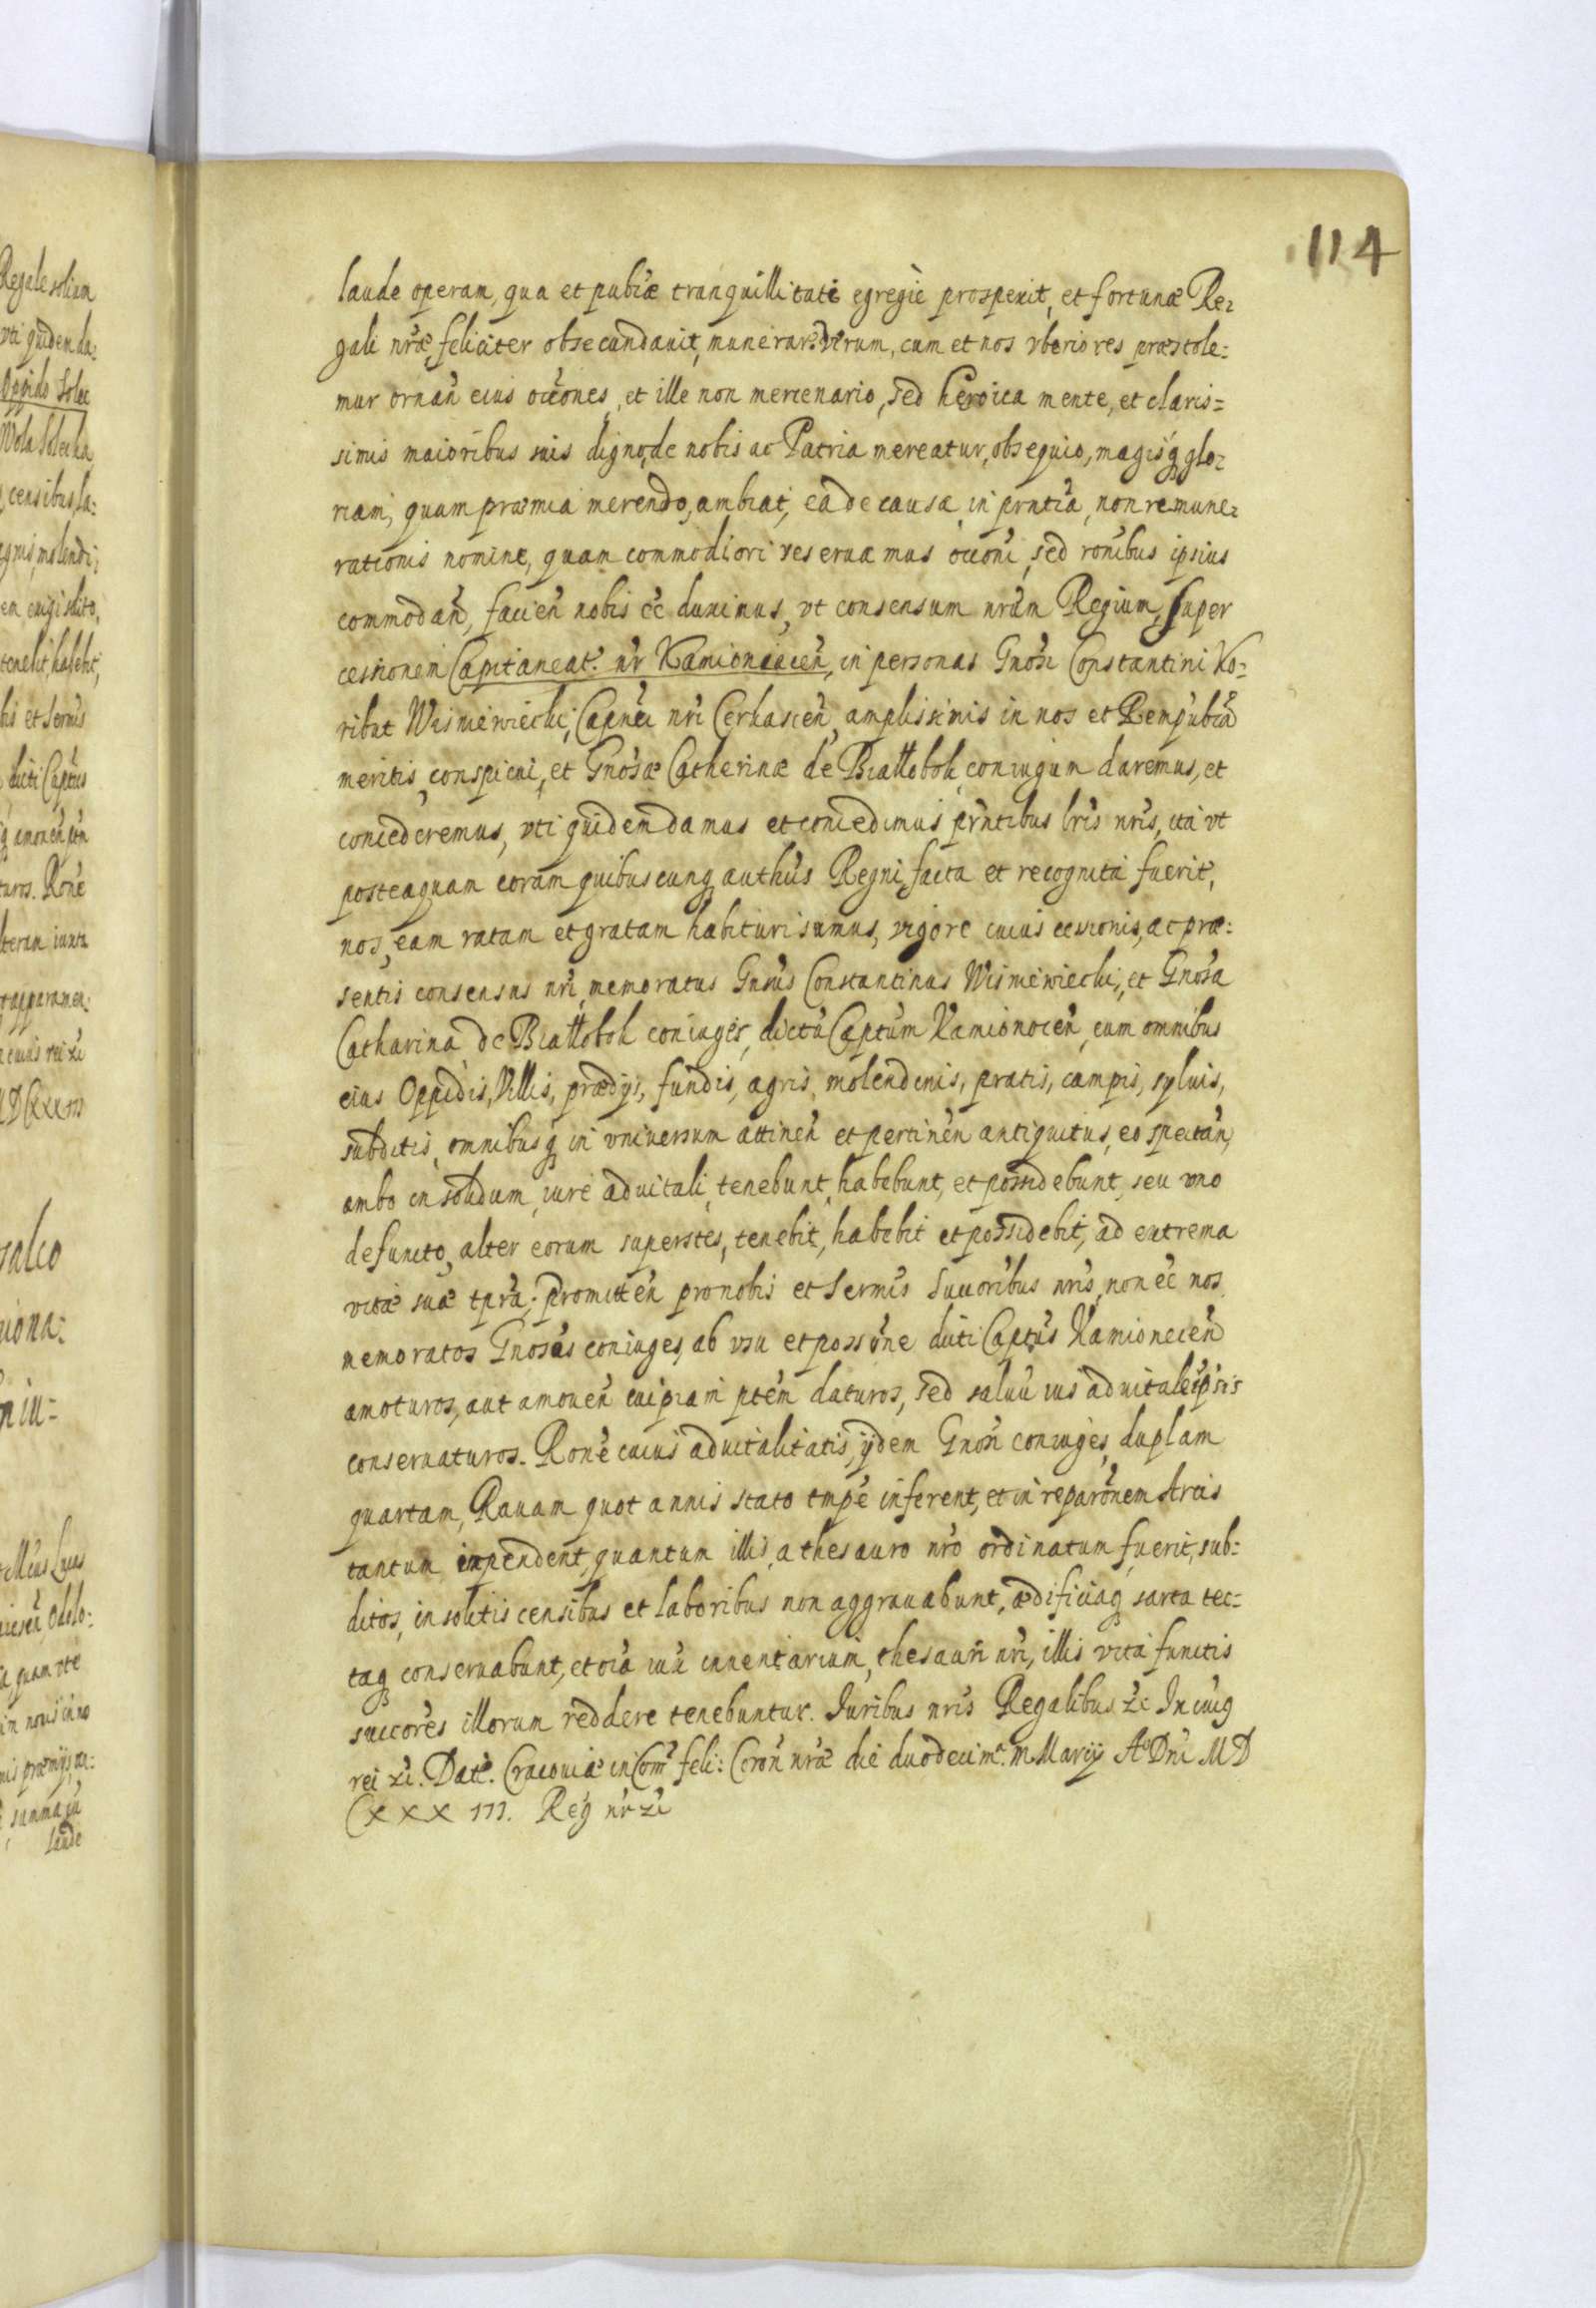 114
laude operam, qua et publicæ tranquillitati egregiè prospexit, et fortunæ Re-
gali nræ, feliciter obsecundauit, munerar. Verum, cum et nos vberiores præstole-
mur ornañ eius occones, et ille non mercenario, sed heroica mente, et claris-
simis maioribus suis digno, de nobis ac Patria mereatur, obsequio, magisq glo-
riam, quam præmia merendo, ambiat, eâ de causa, in prntia, non remune-
rationis nomine, quam commodiori reseruamus occoni, sed ronibus ipsius
commodañ, facieñ nobis ee duximus, vt consensum nrum Regium, super
cessionem Capitaneat. nr Kamionaceñ, in personas Gnosi Constantini Ko-
ribut Wisniewiecki, Capnei nri Cerkasceñ, amplissimis in nos et Rempubcã
meritis conspicui, et Gnosæ Catherinæ de Biallobok, coniugum daremus, et
concederemus, vti quidem damus et concedimus prntibus lris nris, ita vt
posteaquam coram quibuscunq authis Regni, facta et recognita fuerit,
nos, eam ratam et gratam habituri sumus, vigore cuius cessionis, ac præ-
sentis consensus nri, memoratus Gnsus Constantinus Wisniewiecki, et Gnosa
Catharina de Biallobok coniuges, dictũ Captum Kamionoceñ, cum omnibus
eius Oppidis, Villis, prædijs, fundis, agris, molendinis, pratis, campis, syluis,
subditis, omnibusq in vniuersum attineñ et pertineñ antiquitus, eo spectañ,
ambo in solidum, iure aduitali, tenebunt, habebunt, et possidebunt, seu vno
defuncto, alter eorum superstes, tenebit, habebit et possidebit, ad extrema
vitæ suæ tpra; promitteñ pro nobis et Sermis Succoribus nris, non ee nos
memoratos Gnosos coniuges, ab vsu et possone dicti Captus Kamioneceñ
amoturos, aut amoueñ cuipiam ptem daturos, sed saluũ ius aduitale ipsis
conseruaturos. Rone cuius aduitalitatis, ijdem Gnosi coniuges, duplam
quartam, Rauam quot annis stato tmpe inferent, et in reparonem Arcis
tantum inpendent, quantum illis, a thesauro nro ordinatum fuerit, sub-
ditos, insolitis censibus et laboribus non aggrauabunt, ædificiaq sarta tec-
taq conseruabunt, et oia iux inuentarium, thesauri nri, illis vitâ functis
succores illorum reddere tenebuntur. Iuribus nris Regalibus zc In cuiq
rei zc. Dat. Cracouiæ in Com feli: Coron nræ die duodecima. m. Marcij Ao Dni MD
CXXXIII. Reg nr zc